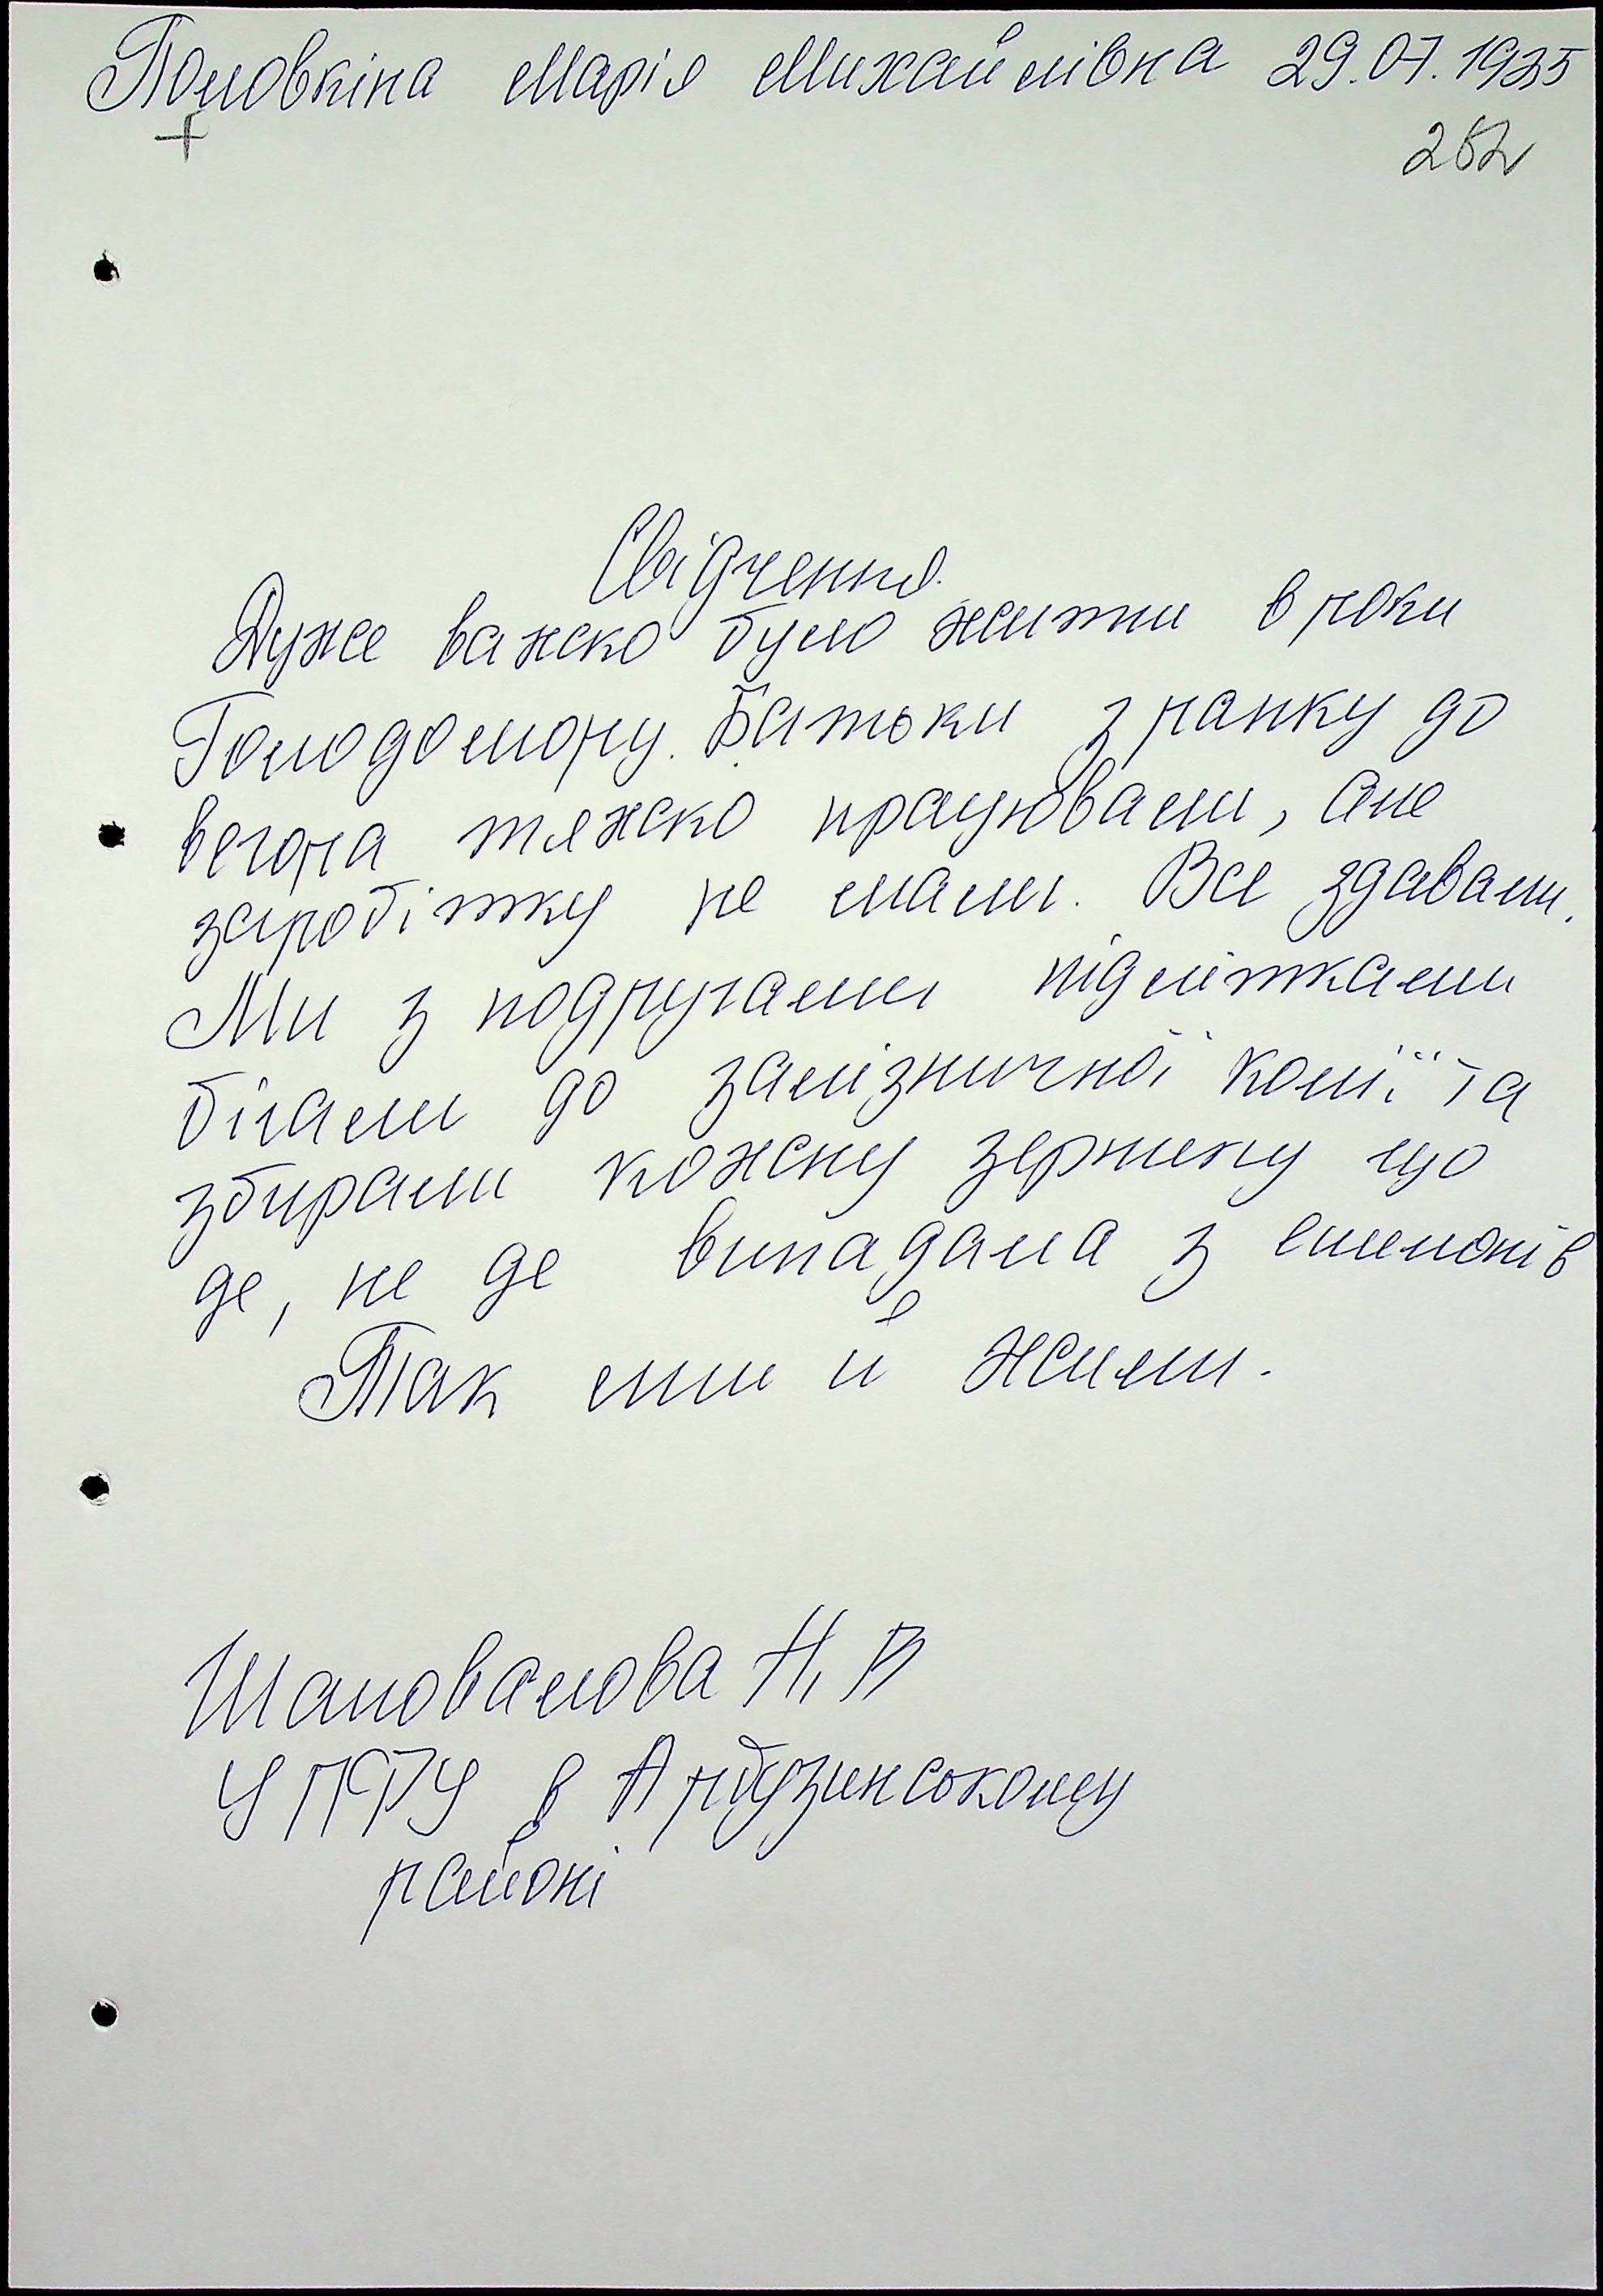 Половкіна Марія Михайлівна 29.07.1935
+ 252
Свідчення.
Дуже важко було жити в роки
Голодомору. Батьки з ранку до
вечора тяжко працювали, але
заробітку не мали. Все здавали.
Ми з подругами підлітками
бігали до залізничної колії та
збирали кожну зернину що
де, не де випадала з ешелонів
Так ми й жили.
Шаповалова Н, В
УПФУ в Арбузинському
районі